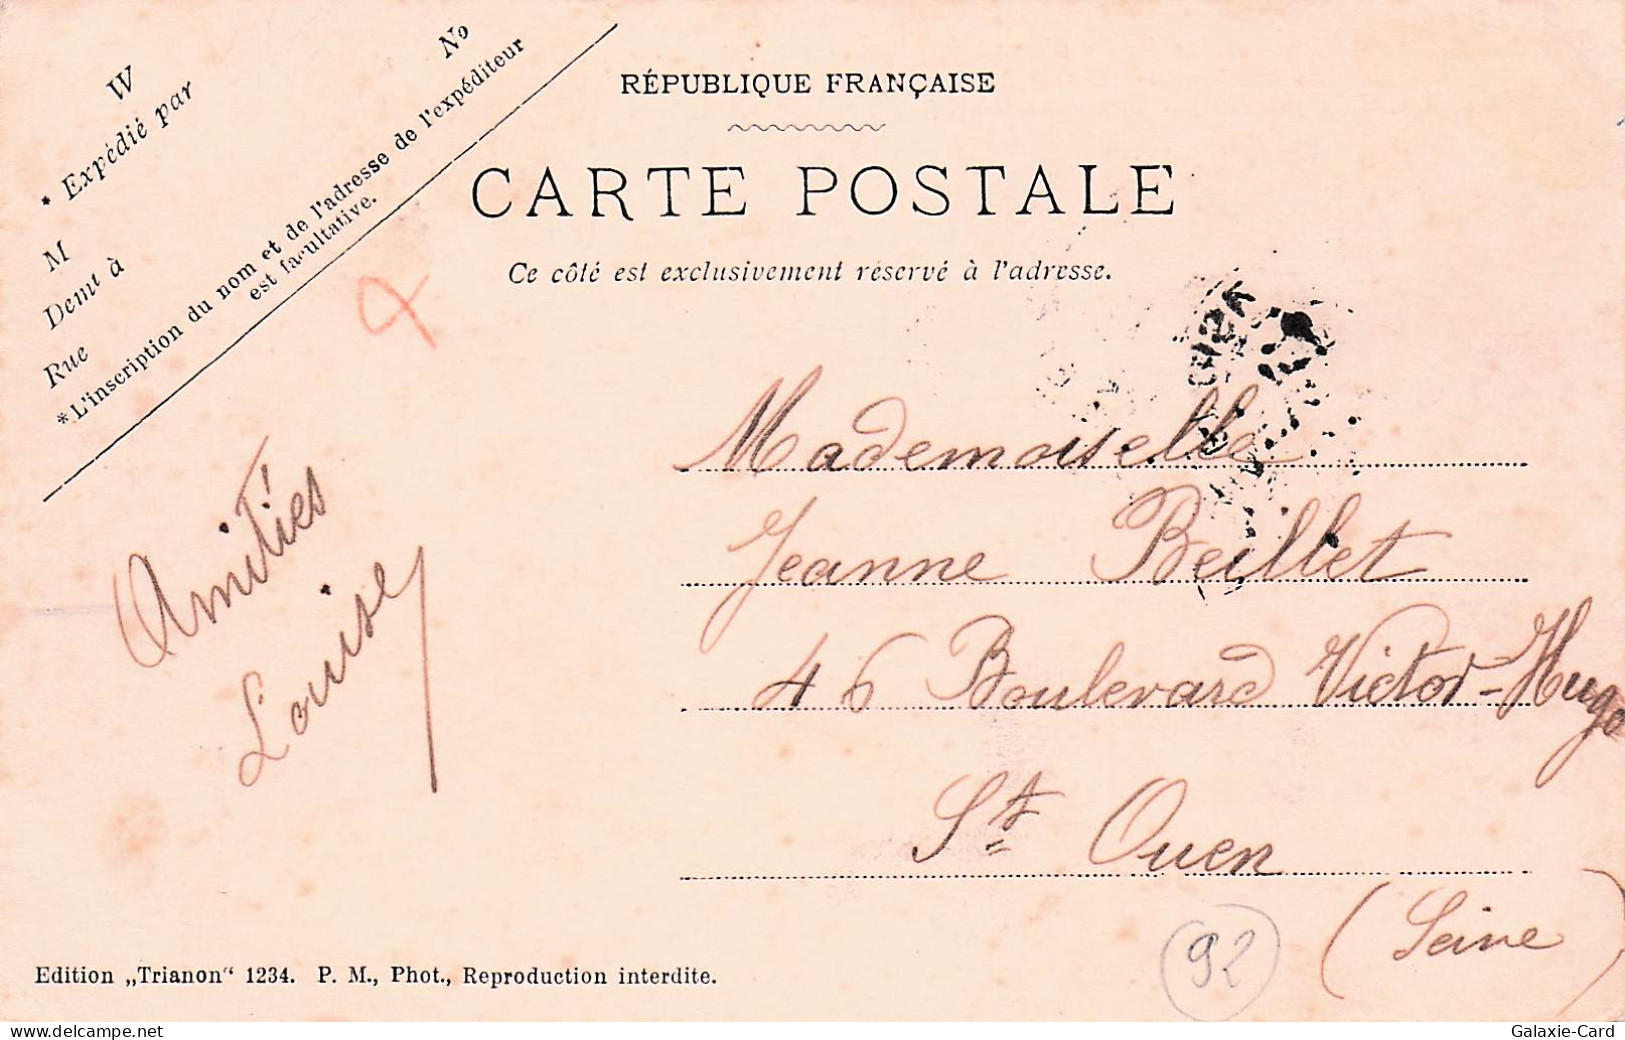 W
N°
* Expédié par
M
Demt à
Rue
*L'inscription du nom et de l'adresse de l'expéditeur
est facultative.
RÉPUBLIQUE FRANÇAISE
CARTE POSTALE
Ce côté est exclusivement réservé à l'adresse.
Amitiés
Louise
Mademoiselle
Jeanne Beillet
46 Boulevard Victor-Hugo
St Ouen
(Seine)
92
Edition „Trianon“ 1234. P. M., Phot., Reproduction interdite.
www.delcampe.net
Galaxie-Card